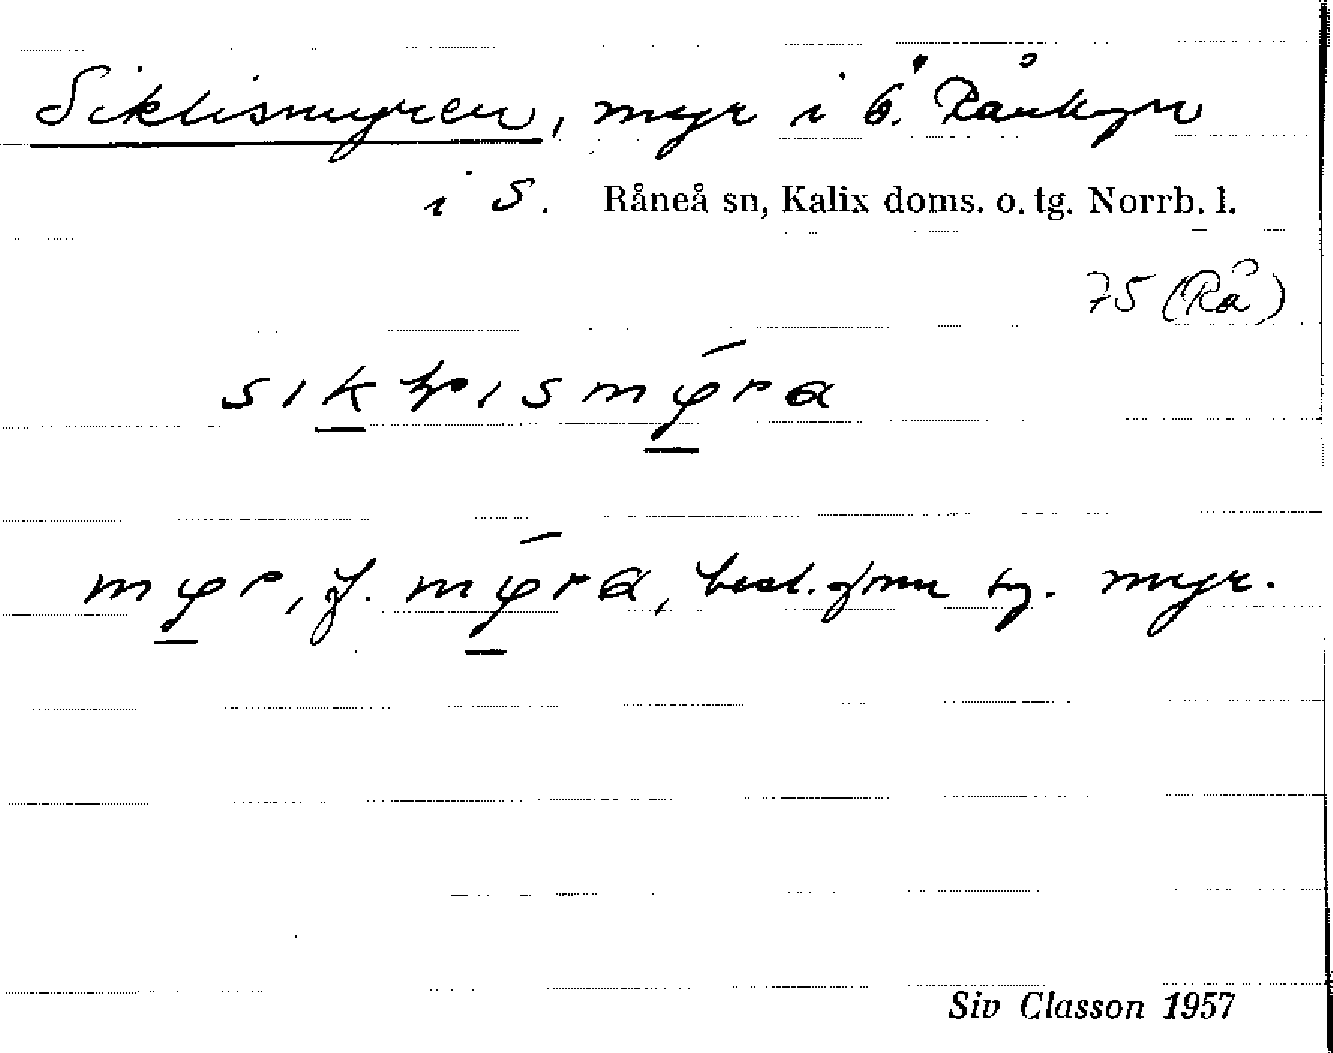 Siklismyren, myr i Ö. Rånkyn
i S. Råneå sn, Kalix doms. o. tg. Norrb. l.
75 (Rå)
myr, f. myra, best. form sg. myr.
Siv Classon 1957